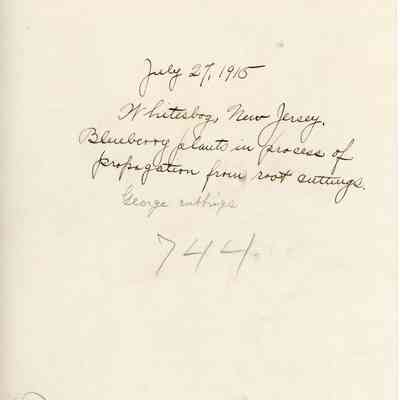 July 27, 1915
Whitesbog, New Jersey.
Blueberry plants in process of
propagation from root cuttings.
George cuttings
744.